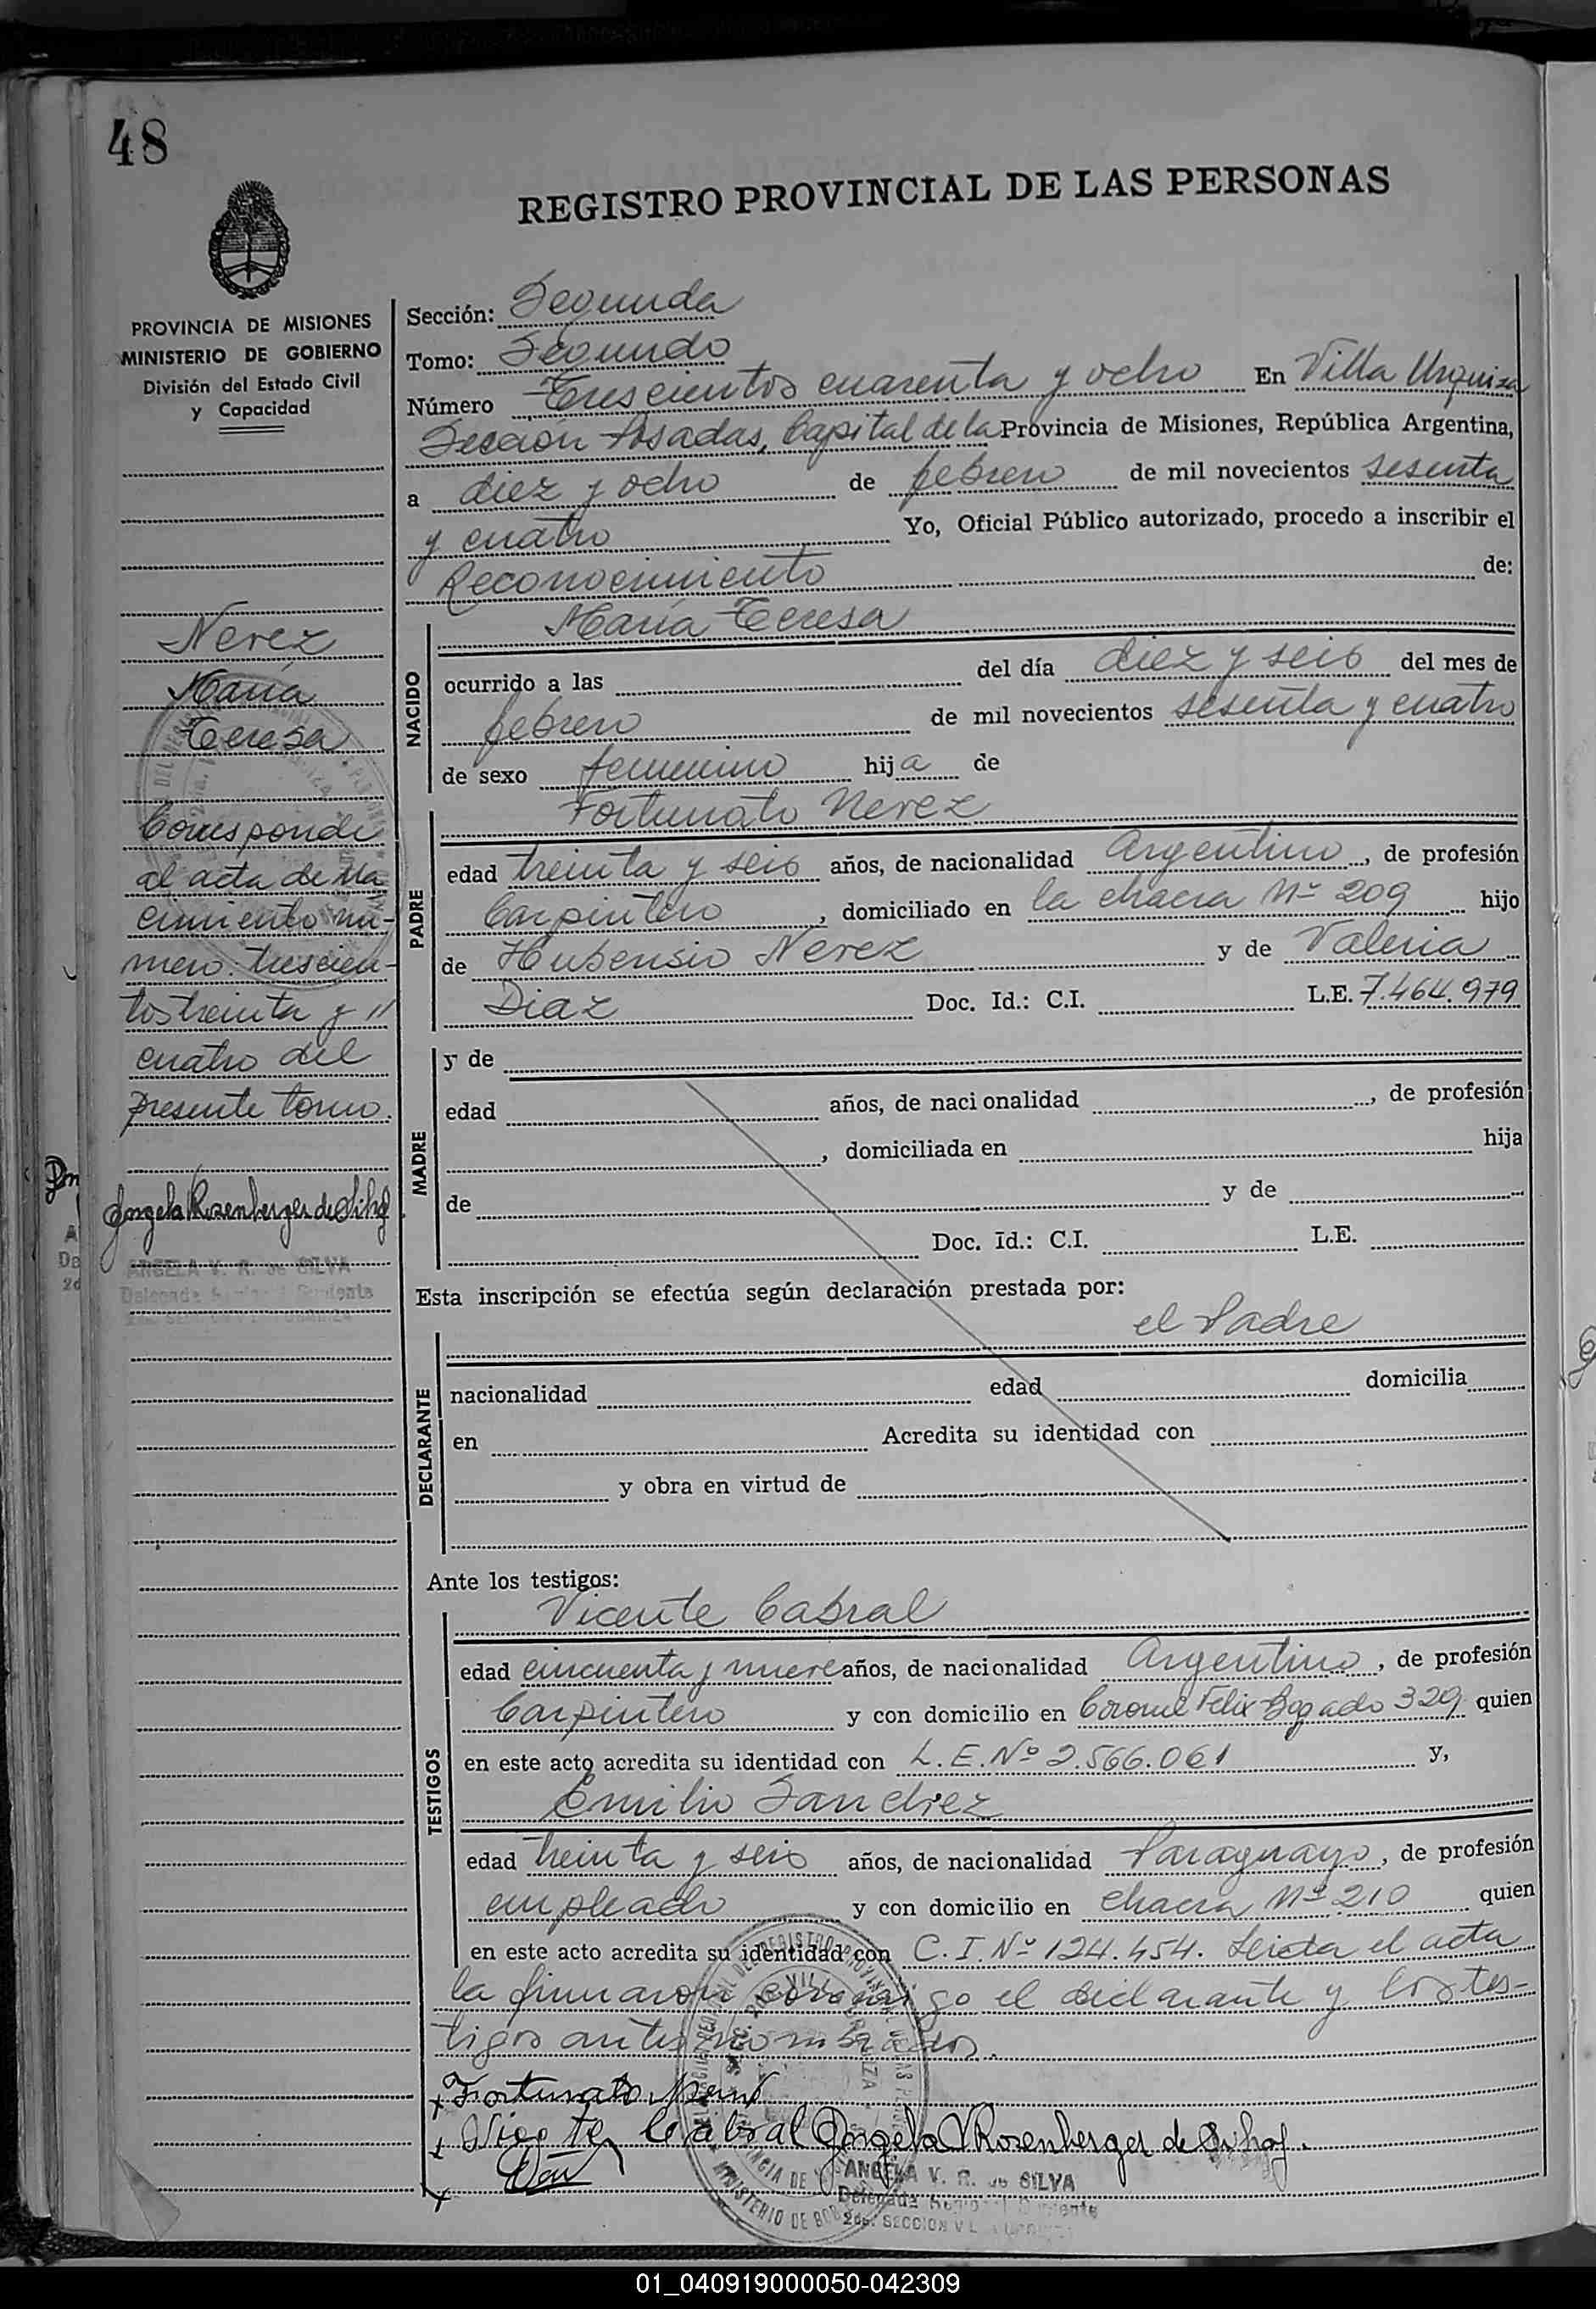 48
REGISTRO PROVINCIAL DE LAS PERSONAS
PROVINCIA DE MISIONES
MINISTERIO DE GOBIERNO
División del Estado Civil
y Capacidad
Nerez
María
Teresa
Corresponde
al acta de na
cimiento nú-
mero trescien-
tos treinta y "
cuatro del
presente tomo.
Angela Rosenberger de Silva
ANGELA V. R. de SILVA
Sección: Segunda
Tomo: Segundo
Número Trescientos cuarenta y ocho En Villa Urquiza
Sección Posadas, Capital de la Provincia de Misiones, República Argentina,
a diez y ocho de febrero de mil novecientos sesenta
y cuatro Yo, Oficial Público autorizado, procedo a inscribir el
Reconocimiento de:
María Teresa
NACIDO
ocurrido a las del día diez y seis del mes de
febrero de mil novecientos sesenta y cuatro
de sexo femenino hija de
Fortunato Nerez
PADRE
edad treinta y seis años, de nacionalidad Argentino, de profesión
Carpintero, domiciliado en la chacra Nº 209 hijo
de Hubensio Nerez y de Valeria
Diaz Doc. Id.: C.I. L.E. 7.464.979
MADRE
y de
edad años, de nacionalidad , de profesión
, domiciliada en hija
de y de
Doc. Id.: C.I. L.E.
Esta inscripción se efectúa según declaración prestada por:
el Padre
DECLARANTE
nacionalidad edad domicilia
en Acredita su identidad con
y obra en virtud de
Ante los testigos:
Vicente Cabral
TESTIGOS
edad cincuenta y nueve años, de nacionalidad Argentino, de profesión
Carpintero y con domicilio en Coronel Felix Bogado 329 quien
en este acto acredita su identidad con L.E.Nº 2.566.061 y,
Emilio Sanchez
edad treinta y seis años, de nacionalidad Paraguayo, de profesión
empleado y con domicilio en chacra Nº 210 quien
en este acto acredita su identidad con C.I.Nº 124.454. Leida el acta
la firmaron conmigo el declarante y los tes-
tigos antes nombrados.
Fortunato
Vicente Cabral Angela V Rosenberger de Silva.
ANGELA V. R. de SILVA
2da. SECCION
01_040919000050-042309